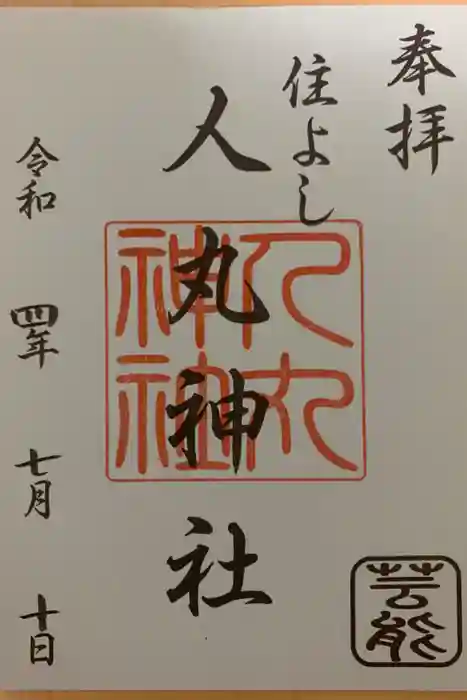 奉拝
住よし
人丸神社
人丸
神社
令和 四年 七月 十日
芸能